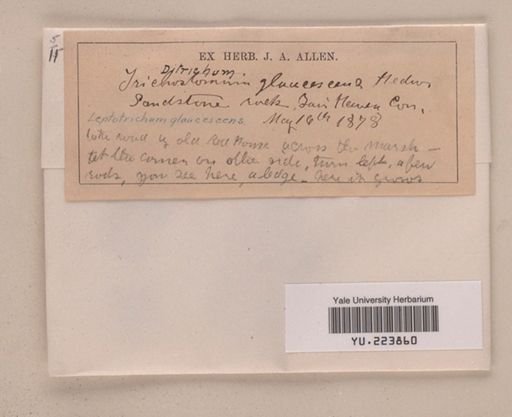 5
11
EX HERB. J. A. ALLEN.
Ditrichum
Trichostomum glaucescens Hedw.
Sandstone rock, Fair Haven Con.
Leptotrichum glaucescens May 16th 1878
take road by old Red House across the marsh –
at the corner on other side, turn left, a few
rods, you see here, a ledge – here it grows
Yale University Herbarium
YU.223860